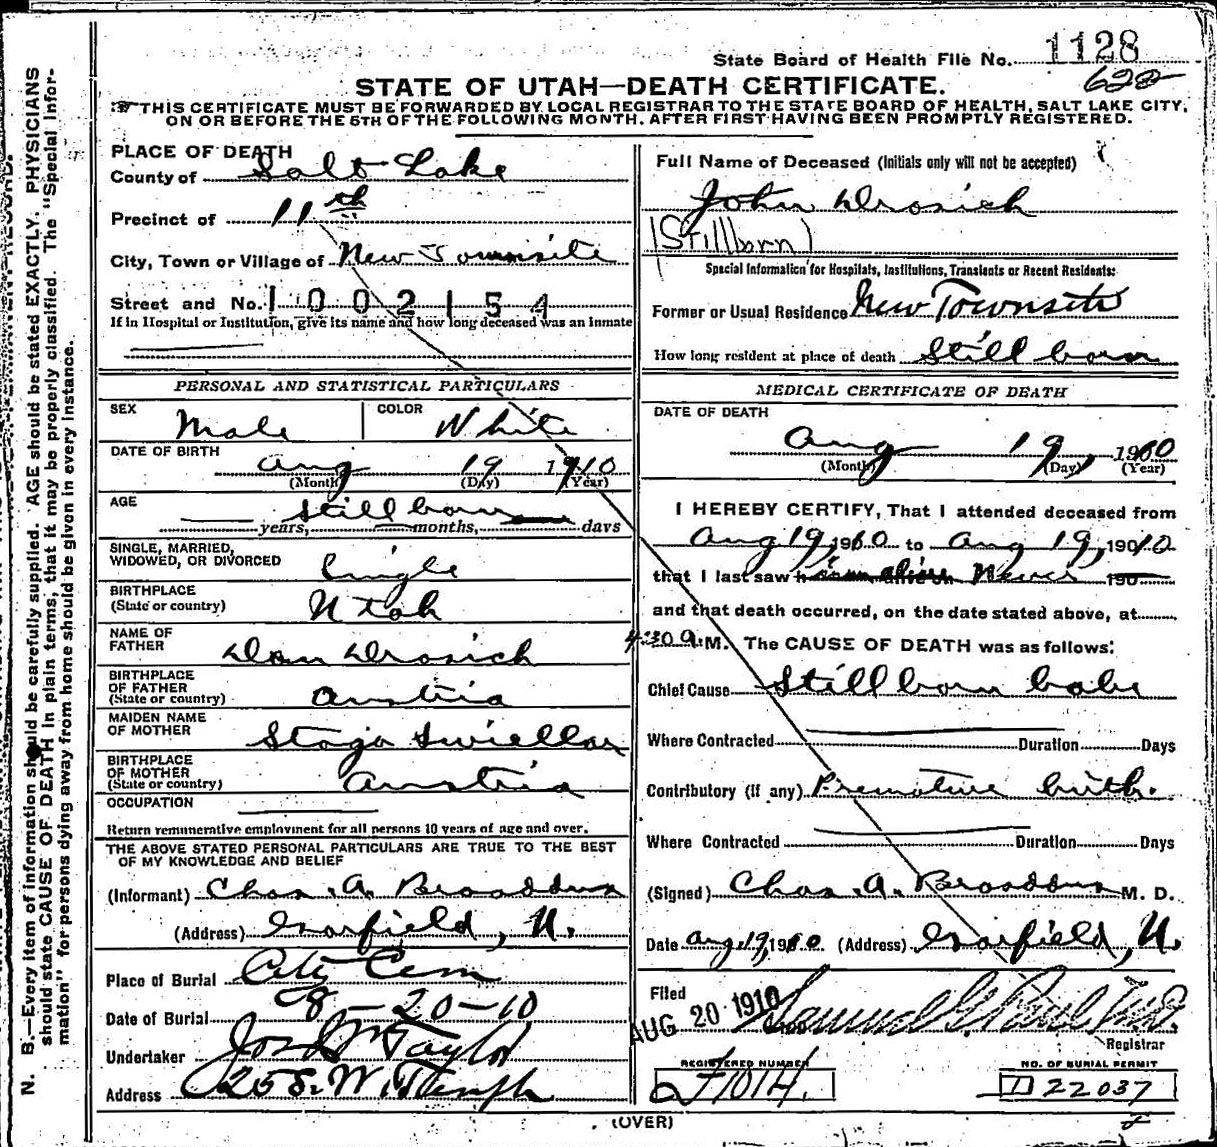 State Board of Health File No. 1128
622
STATE OF UTAH—DEATH CERTIFICATE.
THIS CERTIFICATE MUST BE FORWARDED BY LOCAL REGISTRAR TO THE STATE BOARD OF HEALTH, SALT LAKE CITY,
ON OR BEFORE THE 5TH OF THE FOLLOWING MONTH, AFTER FIRST HAVING BEEN PROMPTLY REGISTERED.
PLACE OF DEATH
County of Salt Lake
Precinct of 11th
City, Town or Village of New Townsite
Street and No. 1002154
If in Hospital or Institution, give its name and how long deceased was an inmate
PERSONAL AND STATISTICAL PARTICULARS
SEX Male COLOR White
DATE OF BIRTH
Aug 19 1910
(Month) (Day) (Year)
AGE
Stillborn
years, months, days
SINGLE, MARRIED,
WIDOWED, OR DIVORCED Single
BIRTHPLACE
(State or country) Utah
NAME OF
FATHER Dan Drosich
BIRTHPLACE
OF FATHER
(State or country) Austria
MAIDEN NAME
OF MOTHER Staja
BIRTHPLACE
OF MOTHER
(State or country) Austria
OCCUPATION
Return remunerative employment for all persons 10 years of age and over.
THE ABOVE STATED PERSONAL PARTICULARS ARE TRUE TO THE BEST
OF MY KNOWLEDGE AND BELIEF
(Informant) Chas. A. Broaddus
(Address) Garfield, U.
Place of Burial City Cem
Date of Burial 8-20-10
Undertaker Jos Wm Taylor
Address 25 S. W. Temple
Full Name of Deceased (Initials only will not be accepted)
John Drosich
(Stillborn)
Special Information for Hospitals, Institutions, Transients or Recent Residents:
Former or Usual Residence New Townsite
How long resident at place of death Still born
MEDICAL CERTIFICATE OF DEATH
DATE OF DEATH
Aug 19, 1910
(Month) (Day) (Year)
I HEREBY CERTIFY, That I attended deceased from
Aug 19, 1910 to Aug 19, 1910
that I last saw h Never 190
and that death occurred, on the date stated above, at
4:30 A.M. The CAUSE OF DEATH was as follows:
Chief Cause Still born babe
Where Contracted Duration Days
Contributory (if any) Premature birth.
Where Contracted Duration Days
(Signed) Chas. A. Broaddus M. D.
Date Aug 19, 1910 (Address) Garfield, U.
Filed
AUG 20 1910 Samuel G. Paul M.D.
Registrar
REGISTERED NUMBER
1014.
NO. OF BURIAL PERMIT
D 22037
(OVER)
N. B.—Every item of information should be carefully supplied. AGE should be stated EXACTLY. PHYSICIANS
should state CAUSE OF DEATH in plain terms, that it may be properly classified. The "Special Infor-
mation" for persons dying away from home should be given in every instance.